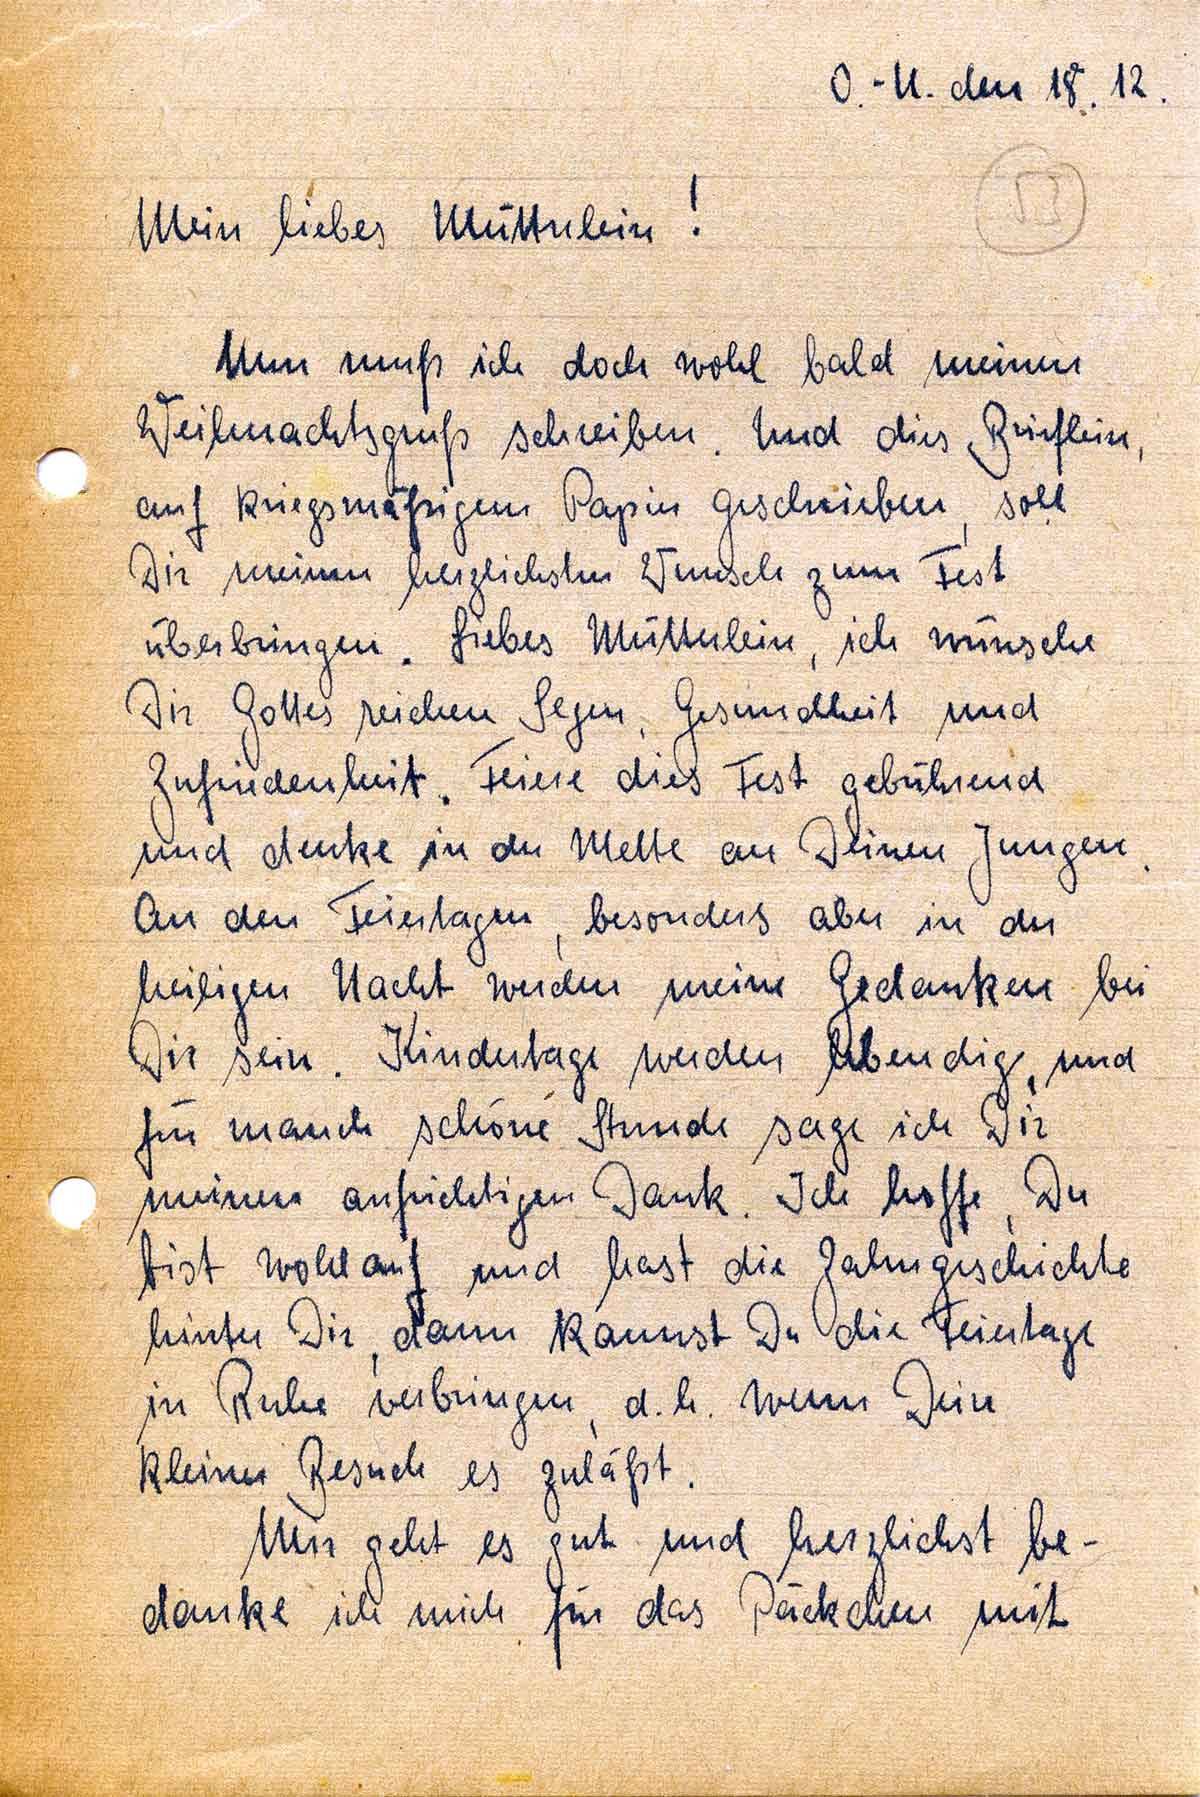 O.-U. den 18. 12.
Mein liebes Mütterlein!
Nun muß ich doch wohl bald meinen
Weihnachtsgruß schreiben. Und dies Brieflein,
auf kriegsmäßigem Papier geschrieben, soll
Dir meinen herzlichsten Wunsch zum Fest
überbringen. Liebes Mütterlein, ich wünsche
Dir Gottes reichen Segen, Gesundheit und
Zufriedenheit. Feiere dies Fest gebührend
und denke in der Mette an Deinen Jungen.
An den Feiertagen, besonders aber in der
heiligen Nacht werden meine Gedanken bei
Dir sein. Kindertage werden lebendig, und
für manch schöne Stunde sage ich Dir
meinen aufrichtigen Dank. Ich hoffe, Du
bist wohlauf und hast die Zahngeschichte
hinter Dir, dann kannst Du die Feiertage
in Ruhe verbringen, d.h. wenn Dein
kleiner Besuch es zuläßt.
Mir geht es gut und herzlichst be-
danke ich mich für das Päckchen mit